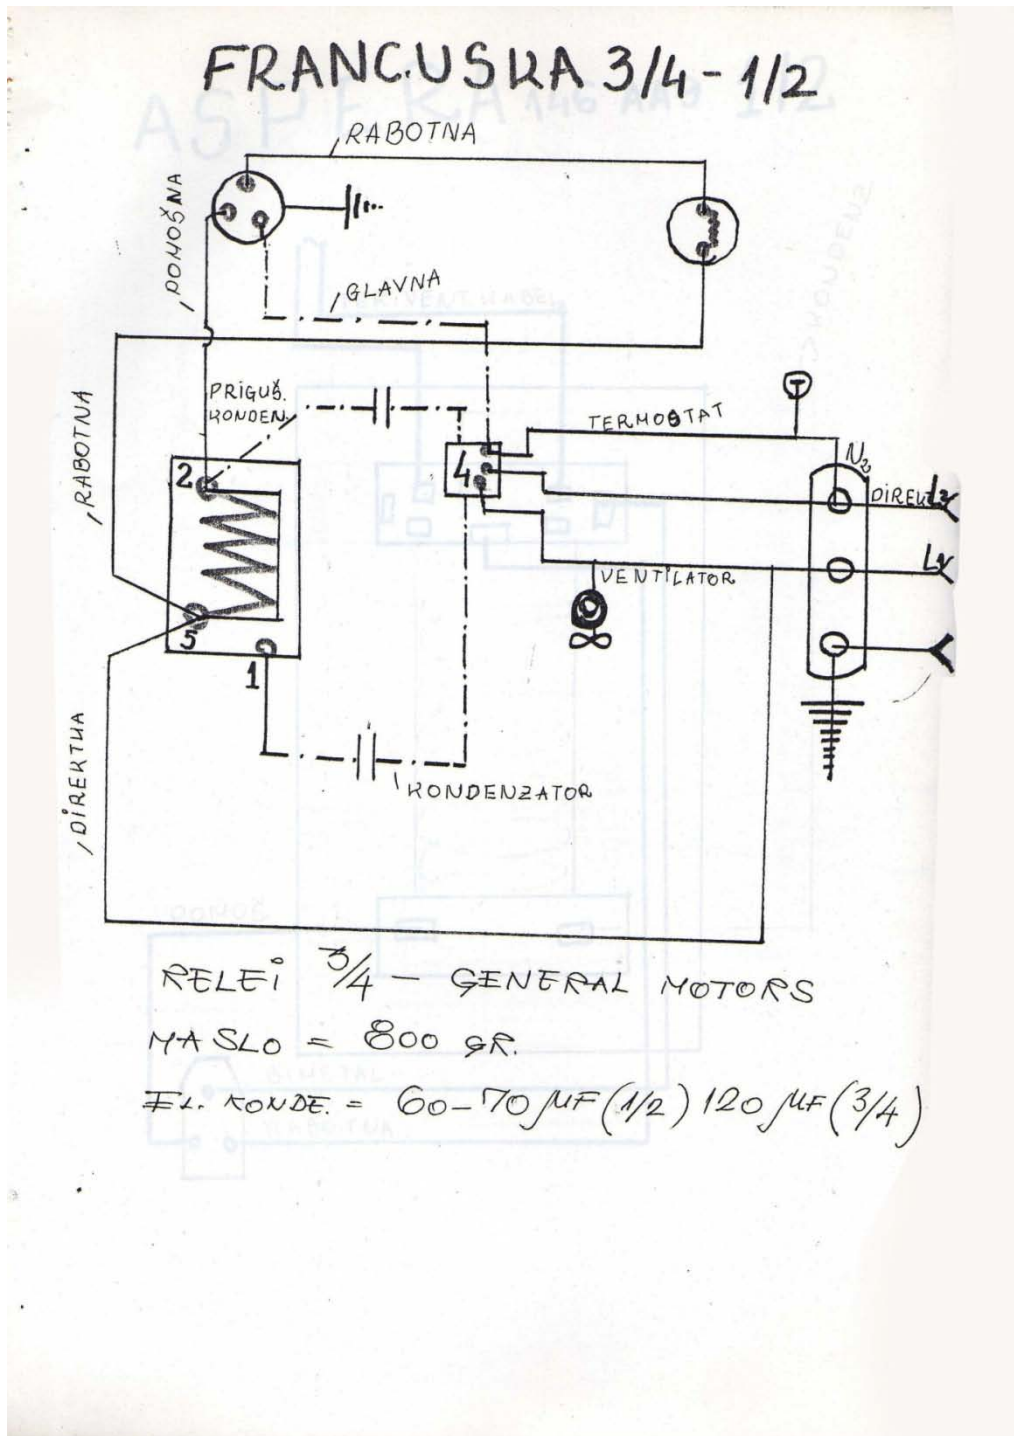 FRANCUSKA 3/4-1/2
RABOTNA
POMOŠNA
GLAVNA
RABOTNA
PRIGUŠ.
KONDEN.
TERMOSTAT
N2
2
4
DIREK
L1
VENTILATOR
5
1
DIREKTNA
KONDENZATOR
RELEI 3/4 - GENERAL MOTORS
MASLO = 800 GR.
EL. KONDE. = 60-70 µMF (1/2) 120 µMF (3/4)